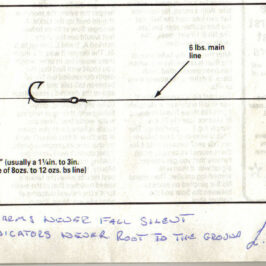 6 lbs. main
line
" (usually a 1¼in. to 3in.
e of 8ozs. to 12 ozs. bs line)
ARMS NEVER FALL SILENT
DICATORS NEVER ROOT TO THE GROUND